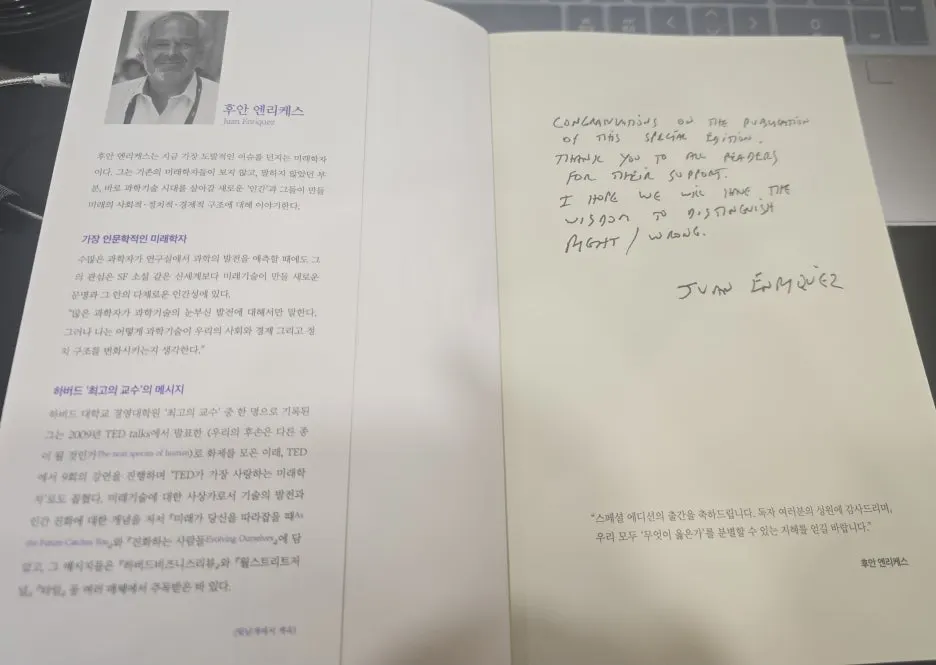 후안 엔리케스
Juan Enriquez
후안 엔리케스는 지금 가장 도발적인 이슈를 던지는 미래학자
이다. 그는 기존의 미래학자들이 보지 않고, 말하지 않았던 부
분, 바로 과학기술 시대를 살아갈 새로운 '인간'과 그들이 만들
미래의 사회적·정치적·경제적 구조에 대해 이야기한다.
가장 인문학적인 미래학자
수많은 과학자가 연구실에서 과학의 발전을 예측할 때에도 그
의 관심은 SF 소설 같은 신세계보다 미래기술이 만들 새로운
문명과 그 안의 다채로운 인간성에 있다.
"많은 과학자가 과학기술의 눈부신 발전에 대해서만 말한다.
그러나 나는 어떻게 과학기술이 우리의 사회와 경제 그리고 정
치 구조를 변화시키는지 생각한다."
하버드 '최고의 교수'의 메시지
하버드 대학교 경영대학원 '최고의 교수' 중 한 명으로 기록된
그는 2009년 TED talks에서 발표한 〈우리의 후손은 다른 종
이 될 것인가The next species of human〉로 화제를 모은 이래, TED
에서 9회의 강연을 진행하며 'TED가 가장 사랑하는 미래학
자'로도 꼽혔다. 미래기술에 대한 사상가로서 기술의 발전과
인간 진화에 대한 개념을 저서 『미래가 당신을 따라잡을 때As
the Future Catches You』와 『진화하는 사람들Evolving Ourselves』에 담
았고, 그 메시지들은 『하버드비즈니스리뷰』와 『월스트리트저
널』 『타임』 등 여러 매체에서 주목받은 바 있다.
(뒷날개에서 계속)
CONGRATULATIONS ON THE PUBLICATION
OF THIS SPECIAL EDITION.
THANK YOU TO ALL READERS
FOR THEIR SUPPORT.
I HOPE WE WILL HAVE THE
WISDOM TO DISTINGUISH
RIGHT / WRONG.
JUAN ENRIQUEZ
"스페셜 에디션의 출간을 축하드립니다. 독자 여러분의 성원에 감사드리며,
우리 모두 '무엇이 옳은가'를 분별할 수 있는 지혜를 얻길 바랍니다."
후안 엔리케스